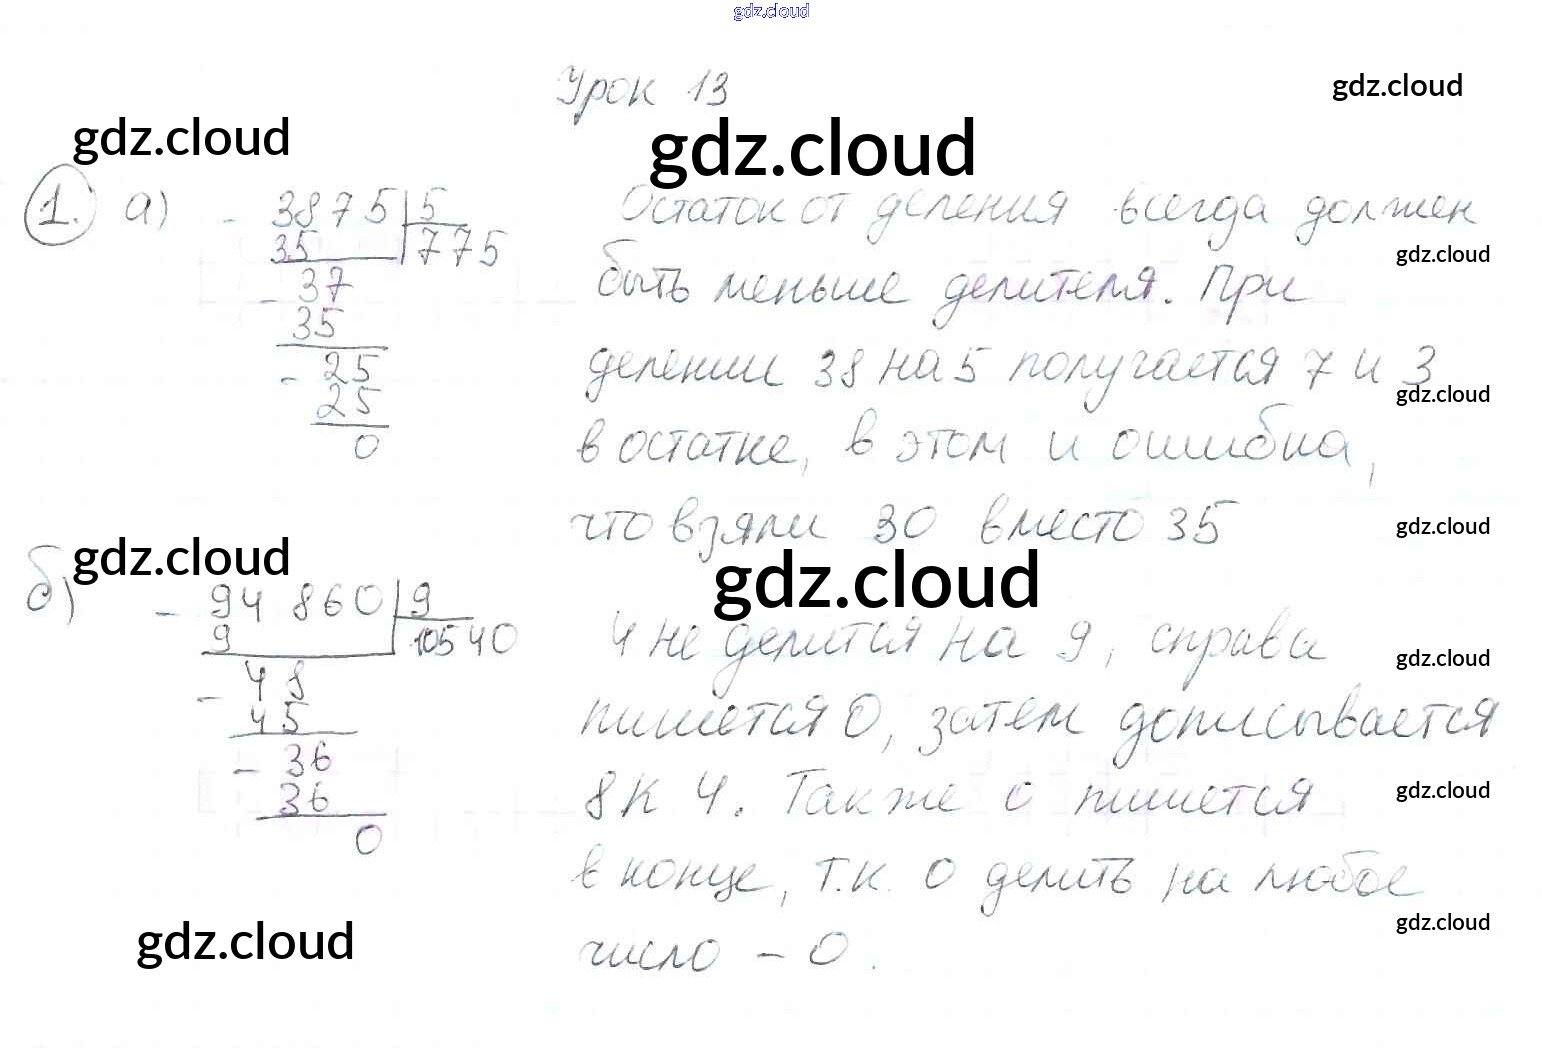 gdz.cloud
Урок 13
gdz.cloud
gdz.cloud
gdz.cloud
1. а) - 3875 | 5
35 | 775
- 37
35
- 25
25
0
Остаток от деления всегда должен
gdz.cloud
быть меньше делителя. При
делении 38 на 5 получается 7 и 3
gdz.cloud
в остатке, в этом и ошибка,
что взяли 30 вместо 35
gdz.cloud
gdz.cloud
gdz.cloud
б) - 94 860 | 9
9 | 10540
- 48
45
- 36
36
0
4 не делится на 9, справа
gdz.cloud
пишется 0, затем дописывается
8 к 4. Также 0 пишется
gdz.cloud
в конце, т.к. 0 делить на любое
gdz.cloud
число – 0.
gdz.cloud